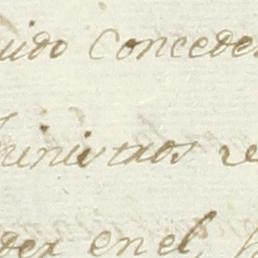 uido conceder
ministros re
der en el